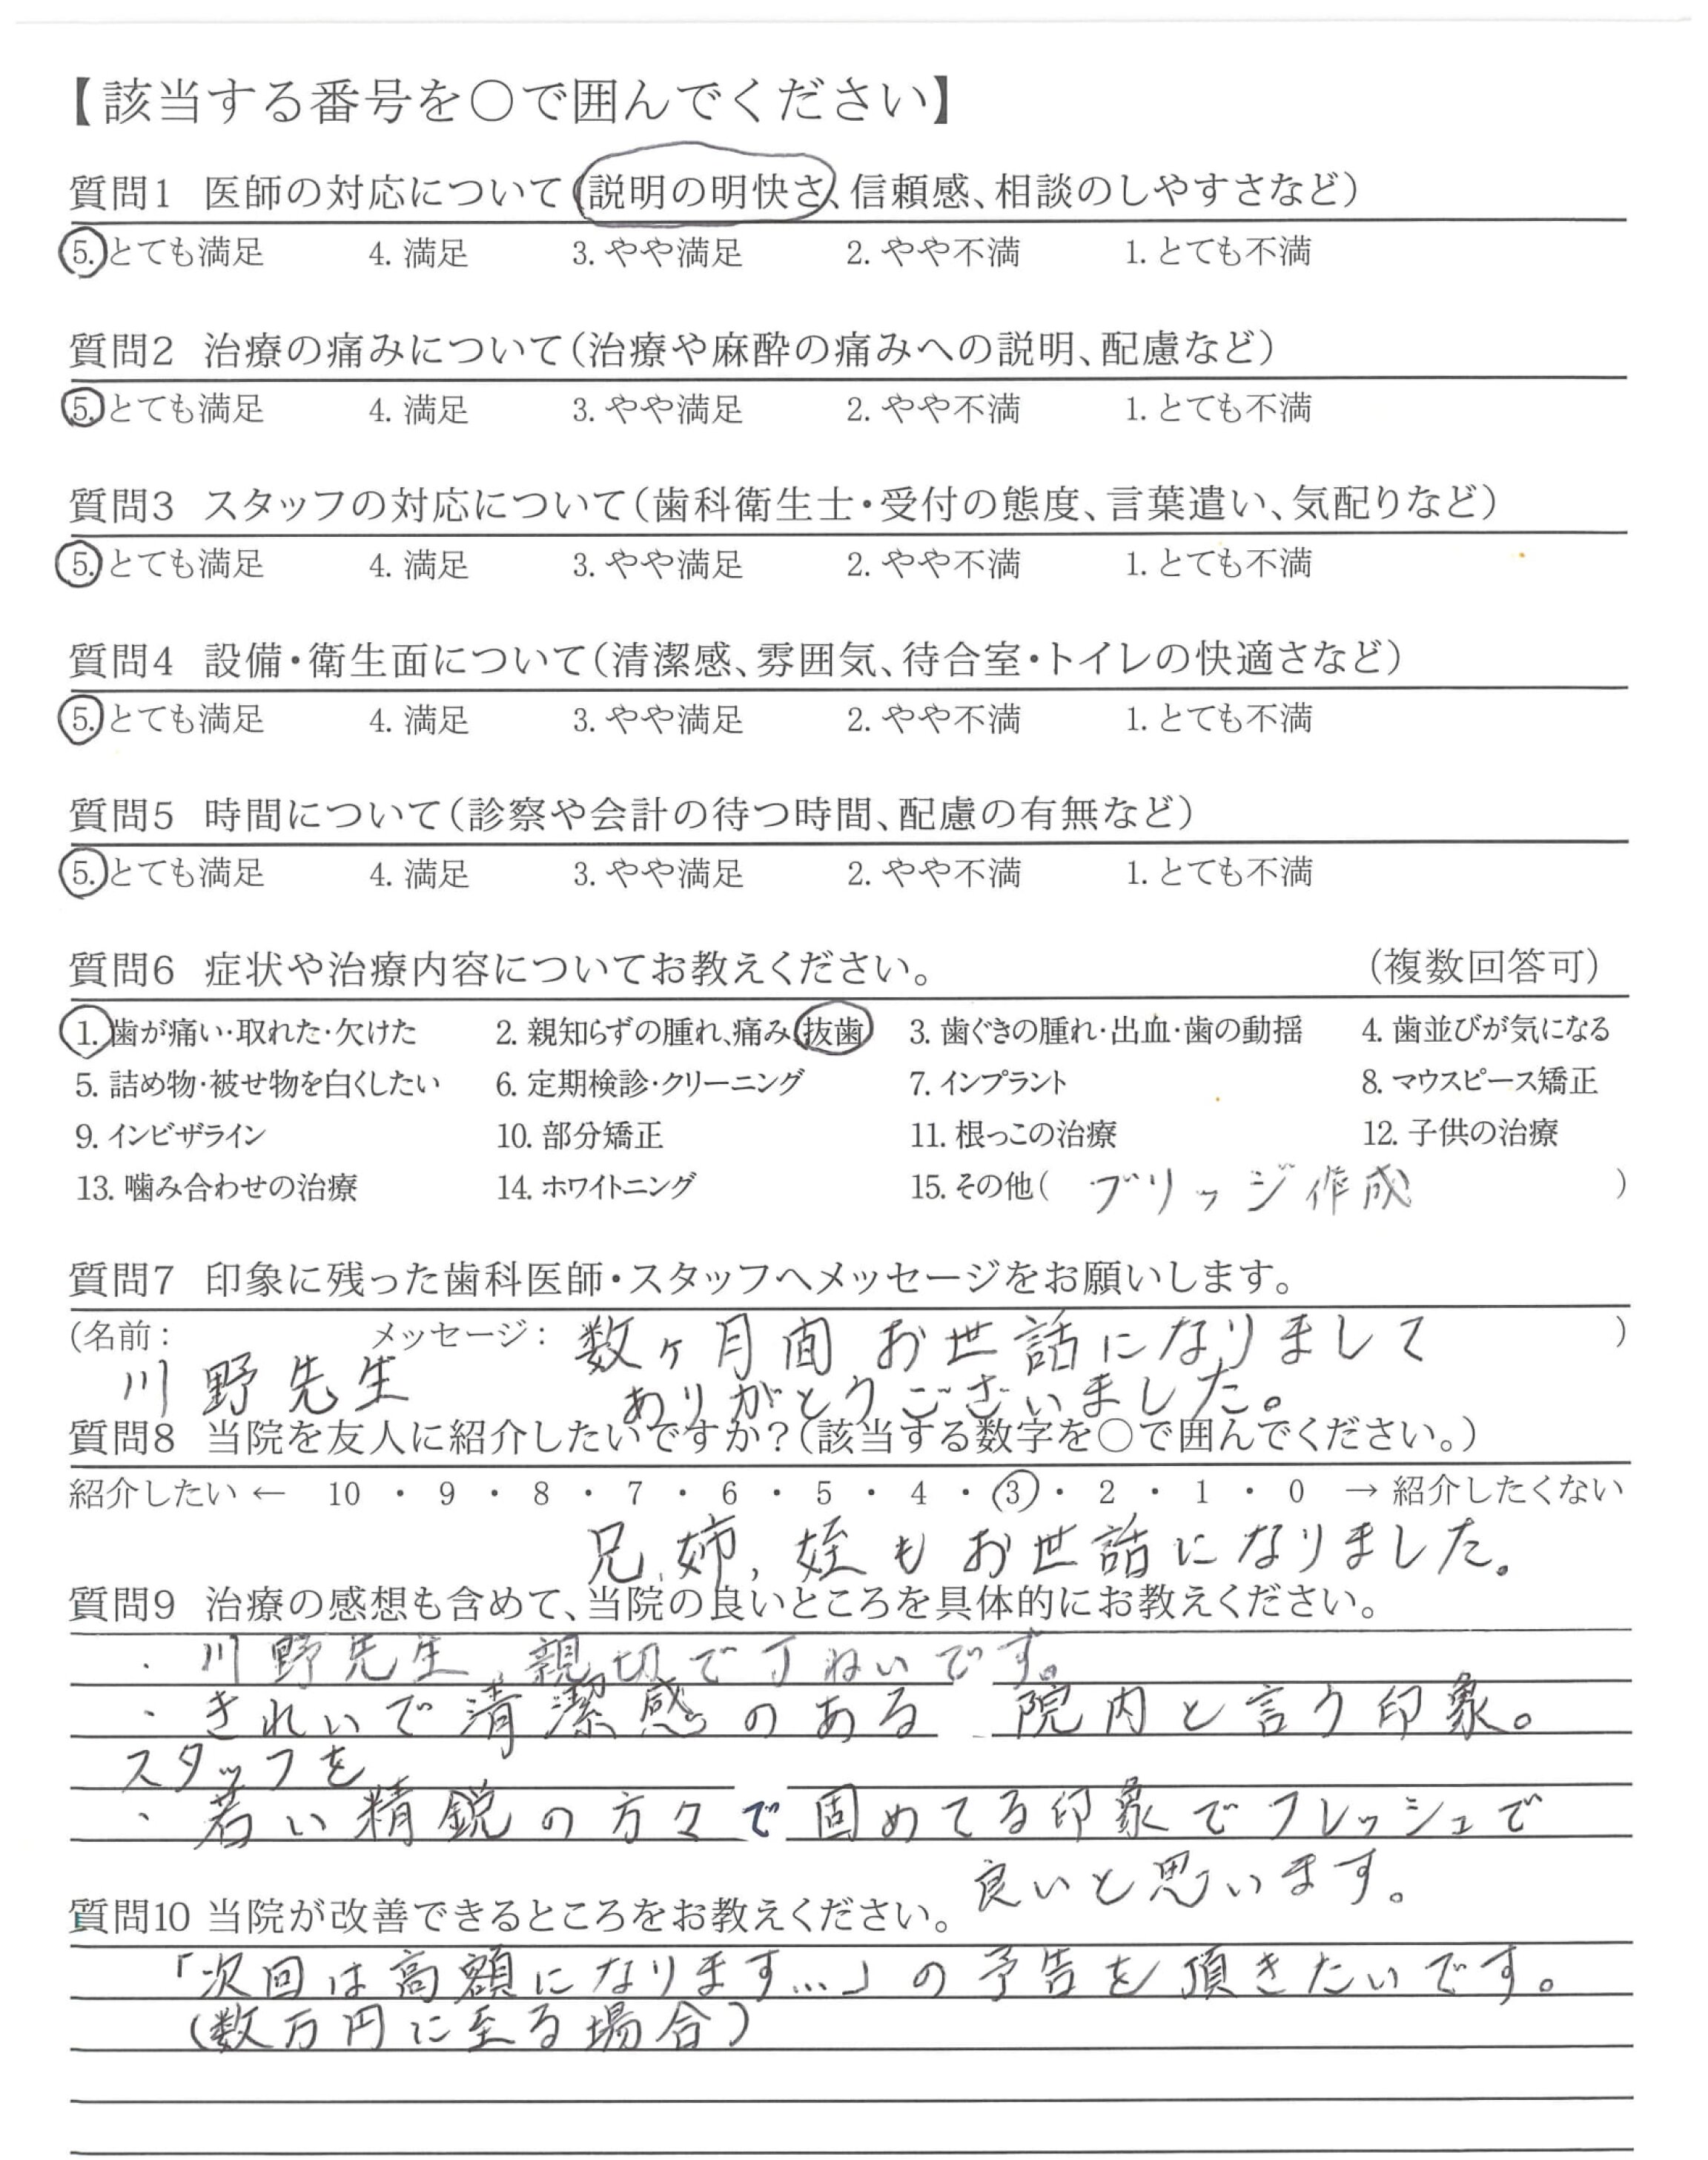 【該当する番号を○で囲んでください】
質問1 医師の対応について(説明の明快さ、信頼感、相談のしやすさなど)
5. とても満足 4. 満足 3. やや満足 2. やや不満 1. とても不満
質問2 治療の痛みについて(治療や麻酔の痛みへの説明、配慮など)
5. とても満足 4. 満足 3. やや満足 2. やや不満 1. とても不満
質問3 スタッフの対応について(歯科衛生士・受付の態度、言葉遣い、気配りなど)
5. とても満足 4. 満足 3. やや満足 2. やや不満 1. とても不満
質問4 設備・衛生面について(清潔感、雰囲気、待合室・トイレの快適さなど)
5. とても満足 4. 満足 3. やや満足 2. やや不満 1. とても不満
質問5 時間について(診察や会計の待つ時間、配慮の有無など)
5. とても満足 4. 満足 3. やや満足 2. やや不満 1. とても不満
質問6 症状や治療内容についてお教えください。 (複数回答可)
1. 歯が痛い・取れた・欠けた 2. 親知らずの腫れ、痛み、抜歯 3. 歯ぐきの腫れ・出血・歯の動揺 4. 歯並びが気になる
5. 詰め物・被せ物を白くしたい 6. 定期検診・クリーニング 7. インプラント 8. マウスピース矯正
9. インビザライン 10. 部分矯正 11. 根っこの治療 12. 子供の治療
13. 噛み合わせの治療 14. ホワイトニング 15. その他( ブリッジ作成 )
質問7 印象に残った歯科医師・スタッフへメッセージをお願いします。
(名前: メッセージ: 数ヶ月間お世話になりまして )
川野先生 ありがとうございました。
質問8 当院を友人に紹介したいですか?(該当する数字を○で囲んでください。)
紹介したい ← 10 ・ 9 ・ 8 ・ 7 ・ 6 ・ 5 ・ 4 ・ 3 ・ 2 ・ 1 ・ 0 → 紹介したくない
兄、姉、姪もお世話になりました。
質問9 治療の感想も含めて、当院の良いところを具体的にお教えください。
・川野先生、親切で丁ねいです。
・きれいで清潔感のある 院内と言う印象。
スタッフを
・若い精鋭の方々で固めてる印象でフレッシュで
良いと思います。
質問10 当院が改善できるところをお教えください。
「次回は高額になります…」の予告を頂きたいです。
(数万円に至る場合)